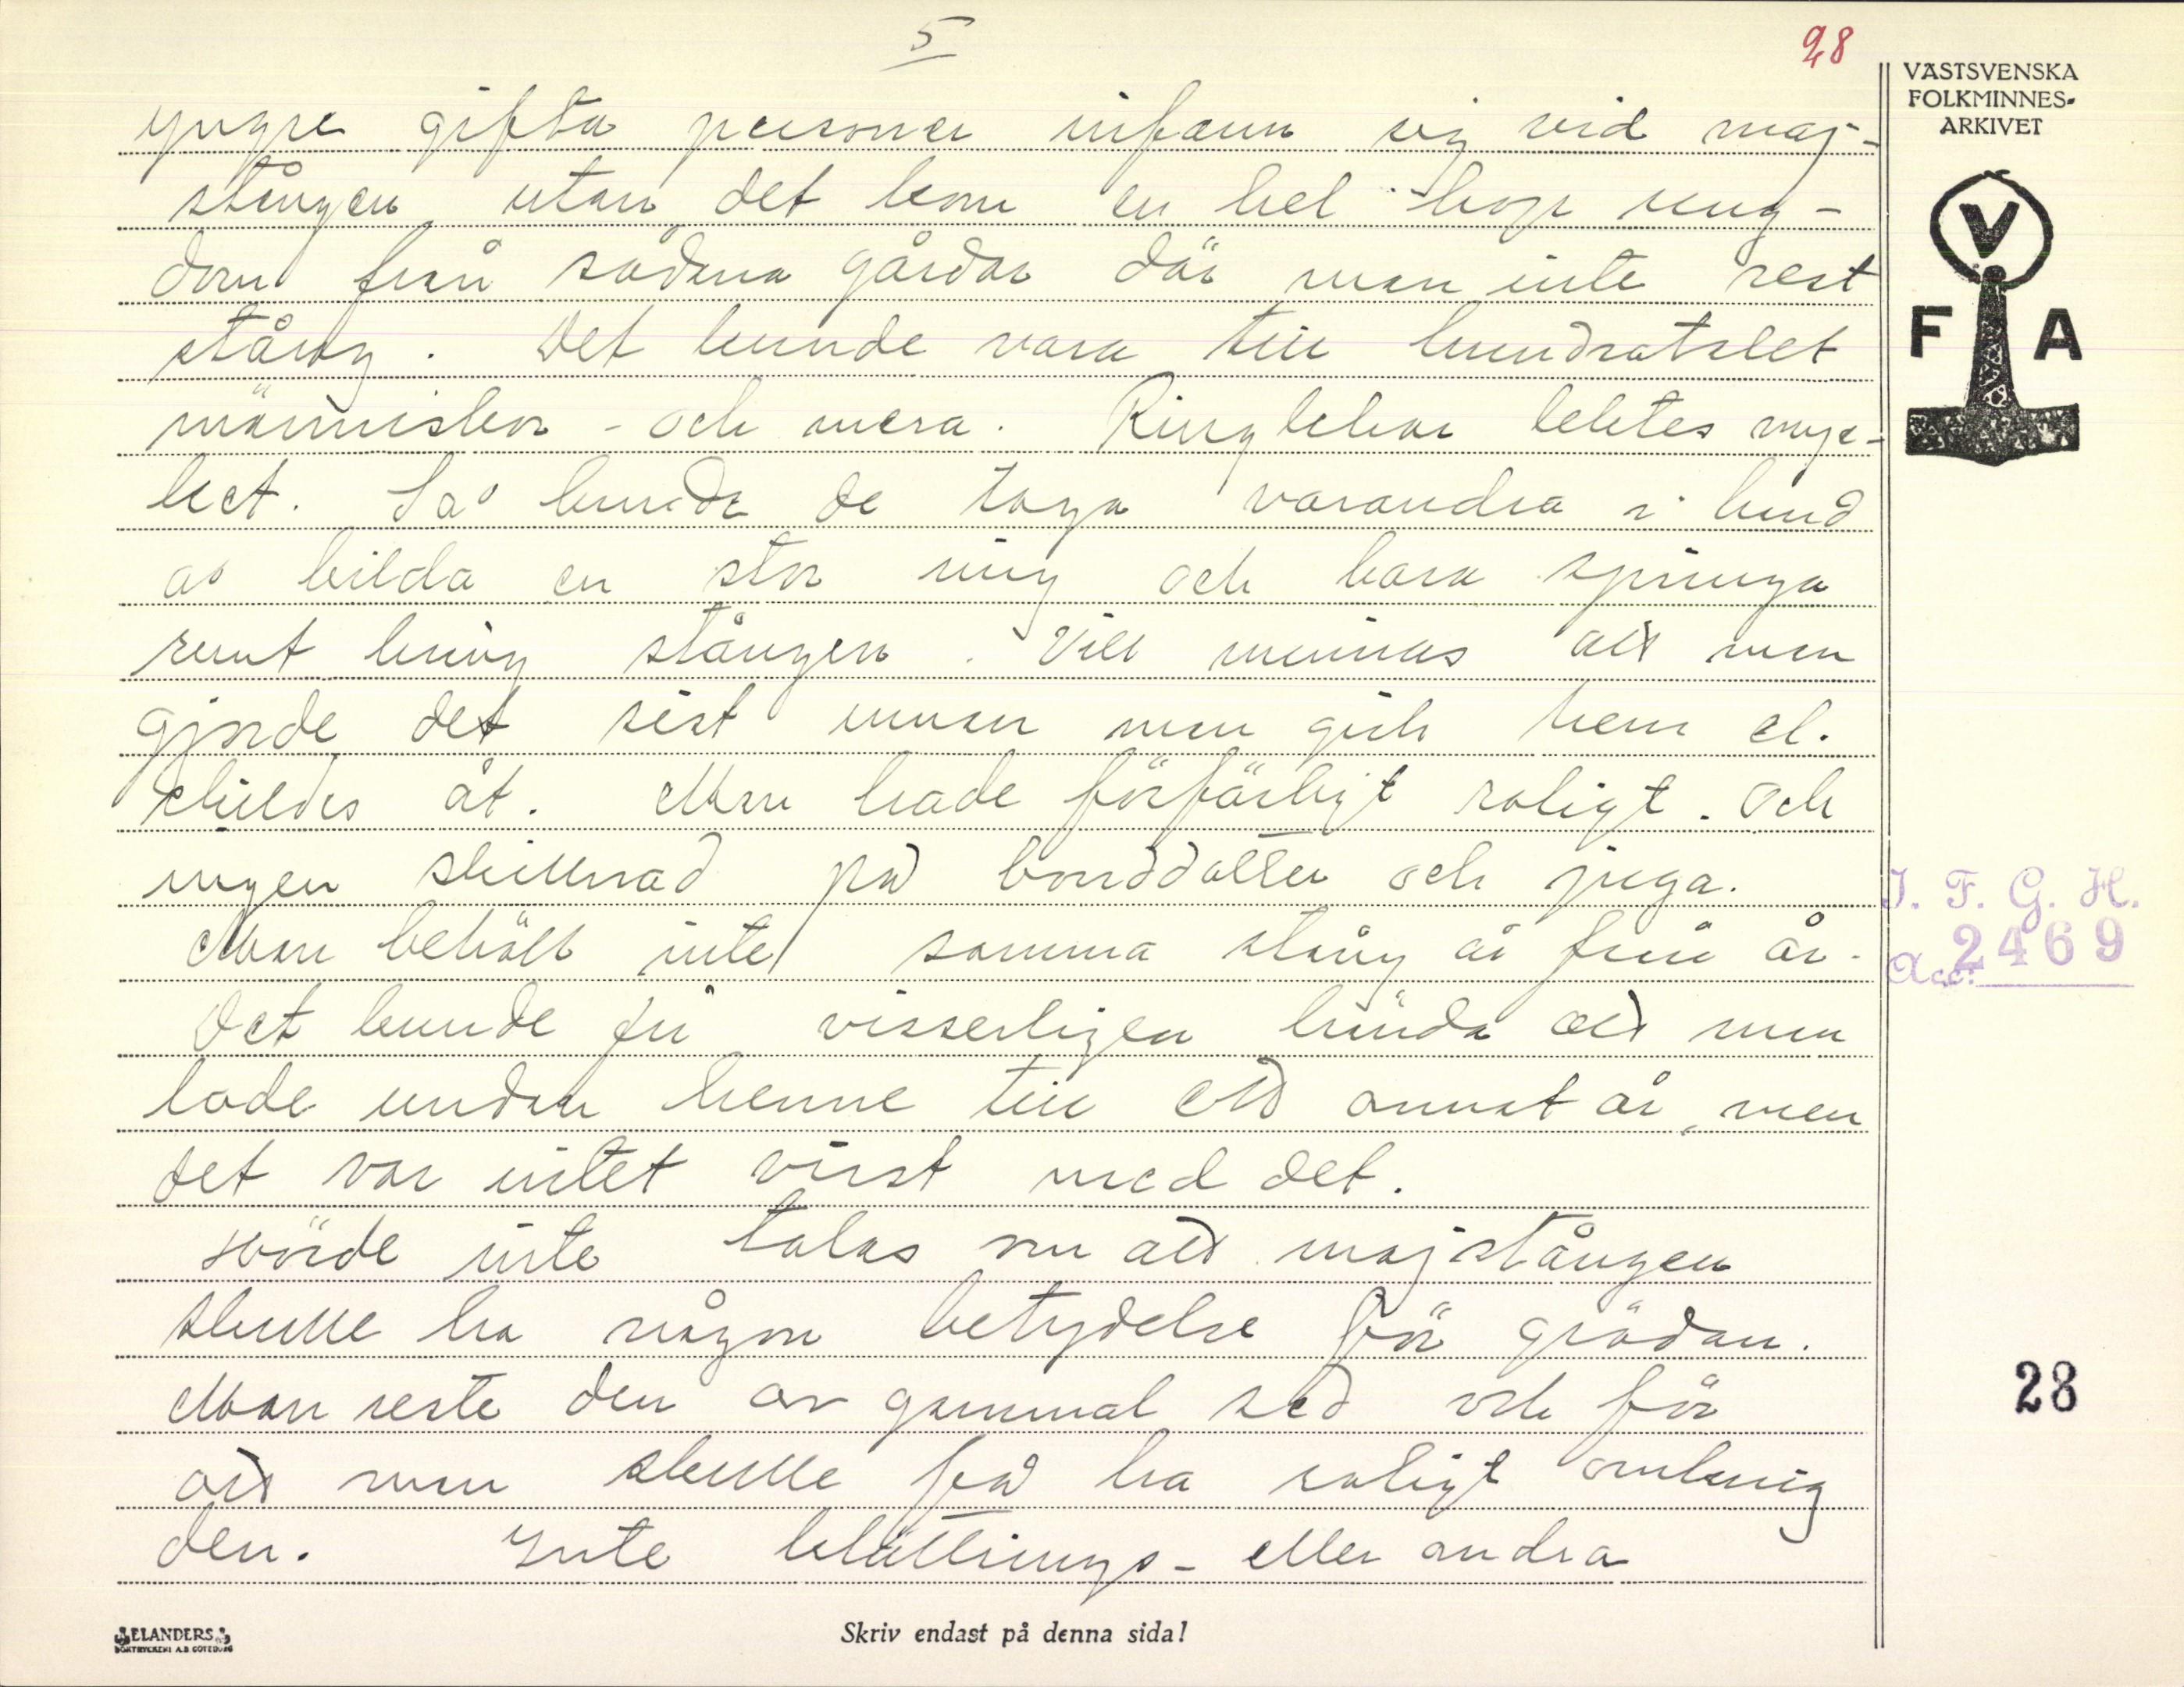 5
28
VÄSTSVENSKA
FOLKMINNES-
ARKIVET
V
F A
yngre gifta personer infann sig vid maj-
stången, utan det kom en hel hop ung-
dom från sådana gårdar där man inte rest
stång. Det kunde vara till hundratalet
människor - och mera. Ringlekar lektes myc-
ket. Så kunde de taga varandra i hand
å bilda en stor ring och bara springa
runt kring stången. Vill minnas att man
gjorde det sist innan man gick hem el.
skildes åt. Man hade förfärligt roligt. Och
ingen skillnad på bonddotter och piga.
Man behöll inte samma stång år från år.
Det kunde ju visserligen hända att man
lade undan henne till ett annat år, men
det var intet visst med det.
Hörde inte talas om att majstången
skulle ha någon betydelse för grödan.
Man reste den av gammal sed och för
att man skulle få ha roligt omkring
den. Inte klättrings- eller andra
I. F. G. H.
Acc: 2469
28
ELANDERS
BOKTRYCKERI A.B. GÖTEBORG
Skriv endast på denna sida!